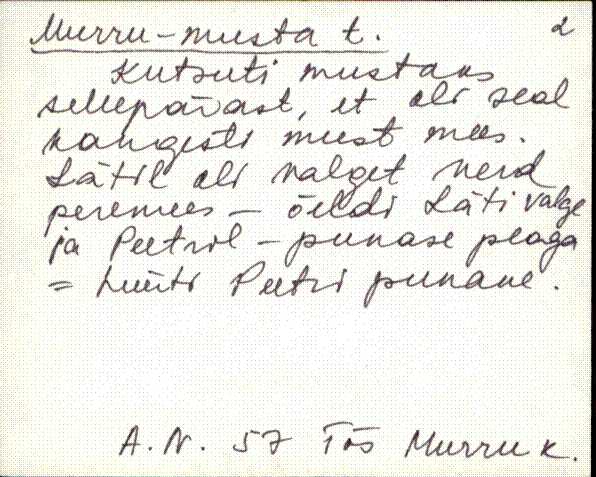 Murru-musta t. 2
Kutsuti mustaks
sellepärast, et oli seal
kangesti must mees.
Lätil oli valget verd
peremees – öeldi Läti valge
ja Peetril – punase peaga
= hüüti Peetri punane.
A.N. 57 Tõs Murru k.